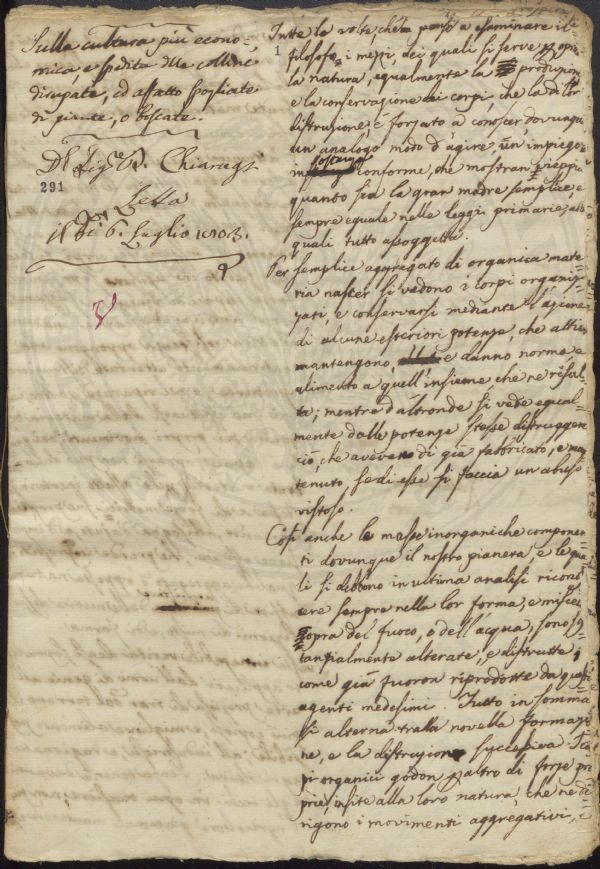 Sulla cultura più econo-
mica, e spedita delle colline
dirupate, ed affatto spogliate
di piante, o boscate.
Del Sig.e D. Chiarugi
291
Letta
il dì 6. Luglio 1803.
1
Tutte le volte, che penso a esaminare il
filosofo i mezzi, dei quali si serve
la natura, egualmente la produzione
e la conservazione dei corpi, che la di lor
distruzione, è forzato a conoscer dovunque
un analogo modo d'agire, un impiego
costante
conforme, che mostran vieppiù
quanto sia la gran madre semplice, e
sempre eguale nelle leggi primarie,
quali tutto assoggetta.
Per semplice aggregato di organica mate-
ria nascer si vedono i corpi organiz-
zati, e conservarsi mediante l'azione
di alcune esteriori potenze, che
mantengono, e danno norma e
alimento a quell'insieme che ne risul-
ta; mentre d'altronde si vede egual-
mente dalle potenze stesse distruggere
ciò, che avevano di già fabricato, e man
tenuto, se di esse si faccia un abuso
vistoso.
Così anche le masse inorganiche componen
ti dovunque il nostro pianeta, e le qua
li si debbono in ultima analisi ricono
scere sempre nella lor forma, e
opra del fuoco, o dell'acqua, sono so
tanzialmente alterate, e distrutte,
come già furon riprodotte da questi
agenti medesimi. Tutto in somma
si alterna tralla novella formazio
ne, e la distruzione successiva. I cor
pi organici godon altro di forze pro
prie, insite alla loro natura, che ne di
rigono i movimenti aggregativi, e